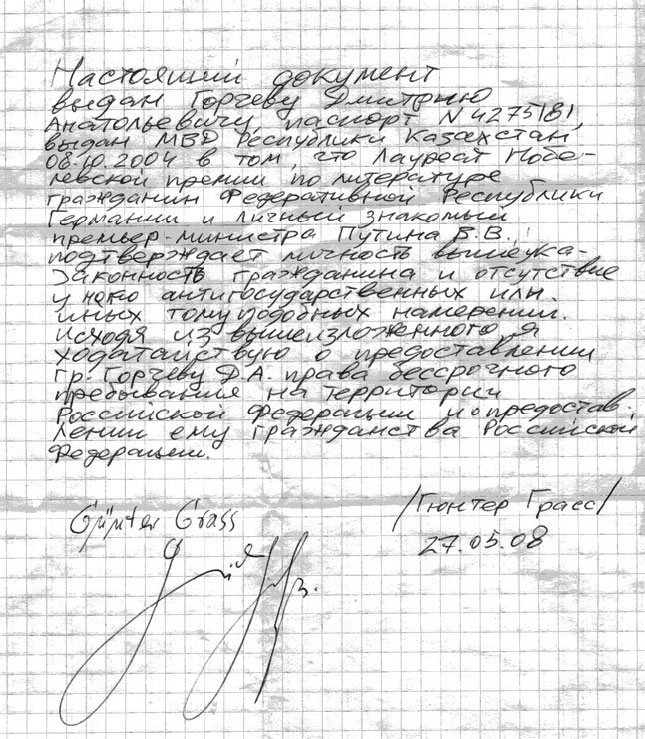 Настоящий документ
выдан Горчеву Дмитрию
Анатольевичу, паспорт N4275181,
выдан МВД Республики Казахстан
08.10.2004 в том, что Лауреат Нобе-
левской премии по литературе
гражданин Федеративной Республики
Германии и личный знакомый
премьер-министра Путина В.В.,
подтверждает личность вышеука-
законность гражданина и отсутствие
у него антигосударственных или
иных тому подобных намерений.
Исходя из вышеизложенного я
ходатайствую о предоставлении
гр. Горчеву Д.А. права бессрочного
пребывания на территории
Российской Федерации и предостав-
лении ему гражданства Российской
Федерации.
Günter Grass
/Гюнтер Грасс/
27.05.08